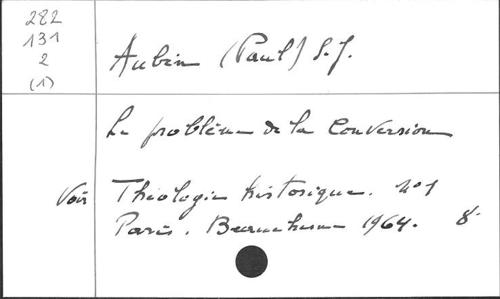 282
131
2
(1)
Aubin (Paul) S.J.
Le problème de la Conversion
Voir Théologie historique. No 1
Paris. Beauchesne 1964. 8°